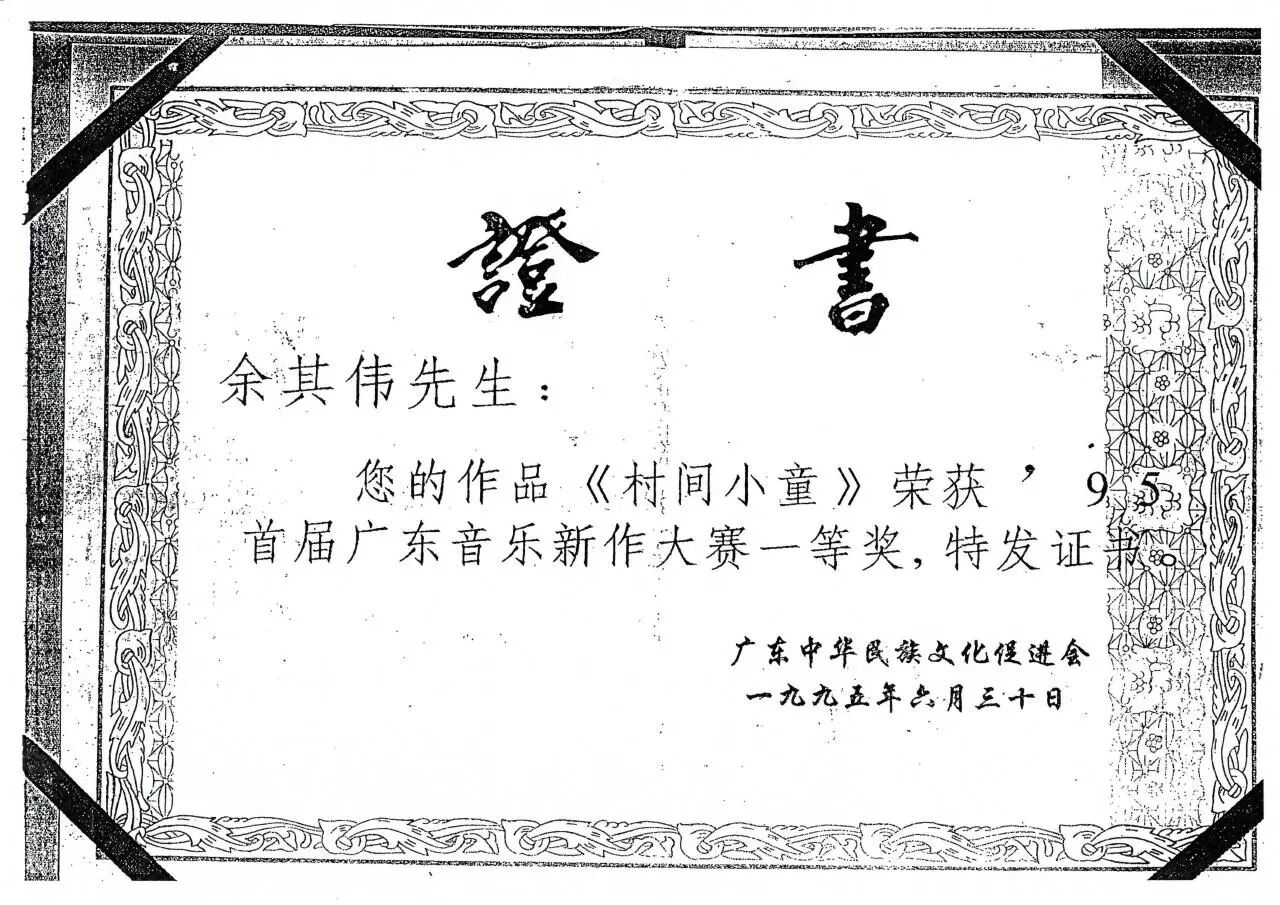 證書
余其伟先生：
您的作品《村间小童》荣获’95
首届广东音乐新作大赛一等奖，特发证书。
广东中华民族文化促进会
一九九五年六月三十日